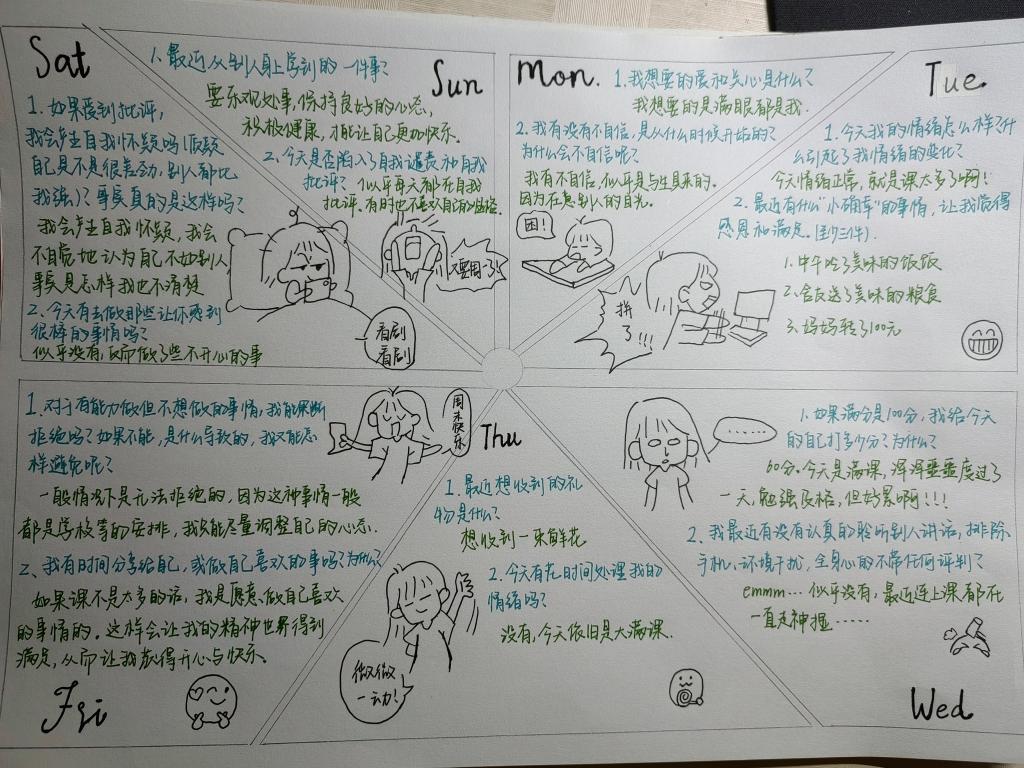 Sat
1. 如果受到批评,
我会产生自我怀疑吗(怀疑
自己是不是很差劲,别人都比
我强)?事实真的是这样吗?
我会产生自我怀疑,我会
不自觉地认为自己不如别人
事实是怎样我也不清楚
2. 今天有去做那些让你感到
很棒的事情吗?
似乎没有,反而做了些不开心的事
看剧
看剧
Sun
1. 最近从别人身上学到的一件事?
要乐观处事,保持良好的心态,
积极健康,才能让自己更加快乐.
2. 今天是否陷入了自我谴责和自我
批评?似乎每天都在自我
批评.有时也不喜欢自己的性格
又要周一了
Mon.
1. 我想要的爱和关心是什么?
我想要的是满眼都是我.
2. 我有没有不自信,是从什么时候开始的?
为什么会不自信呢?
我有不自信,似乎是与生具来的.
因为在意别人的目光.
困!
Tue.
1. 今天我的情绪怎么样?什
么引起了我情绪的变化?
今天情绪正常,就是课太多了啊!
2. 最近有什么“小确幸”的事情,让我觉得
感恩和满足.(至少三件).
1. 中午吃了美味的饭饭
2. 舍友送了美味的粮食
3. 妈妈转了100元
拼
了!!!
Wed
1. 如果满分是100分,我给今天
的自己打多少分?为什么?
60分.今天是满课,浑浑噩噩度过了
一天,勉强及格,但好累啊!!!
2. 我最近有没有认真的聆听别人讲话,排除
手机、环境干扰,全身心的不带任何评判?
emmm… 似乎没有,最近连上课都在
一直走神捏……
……
Thu
1. 最近想收到的礼
物是什么?
想收到一束鲜花
2. 今天有花时间处理我的
情绪吗?
没有,今天依旧是大满课.
做又做
一动!
Fri
1. 对于有能力做但不想做的事情,我能果断
拒绝吗?如果不能,是什么导致的,我又能怎
样避免呢?
一般情况下是无法拒绝的,因为这种事情一般
都是学校等的安排,我只能尽量调整自己的心态.
2、我有时间分享给自己,或做自己喜欢的事吗?为什么?
如果课不是太多的话,我是愿意做自己喜欢
的事情的.这样会让我的精神世界得到
满足,从而让我觉得开心与快乐.
周末快乐